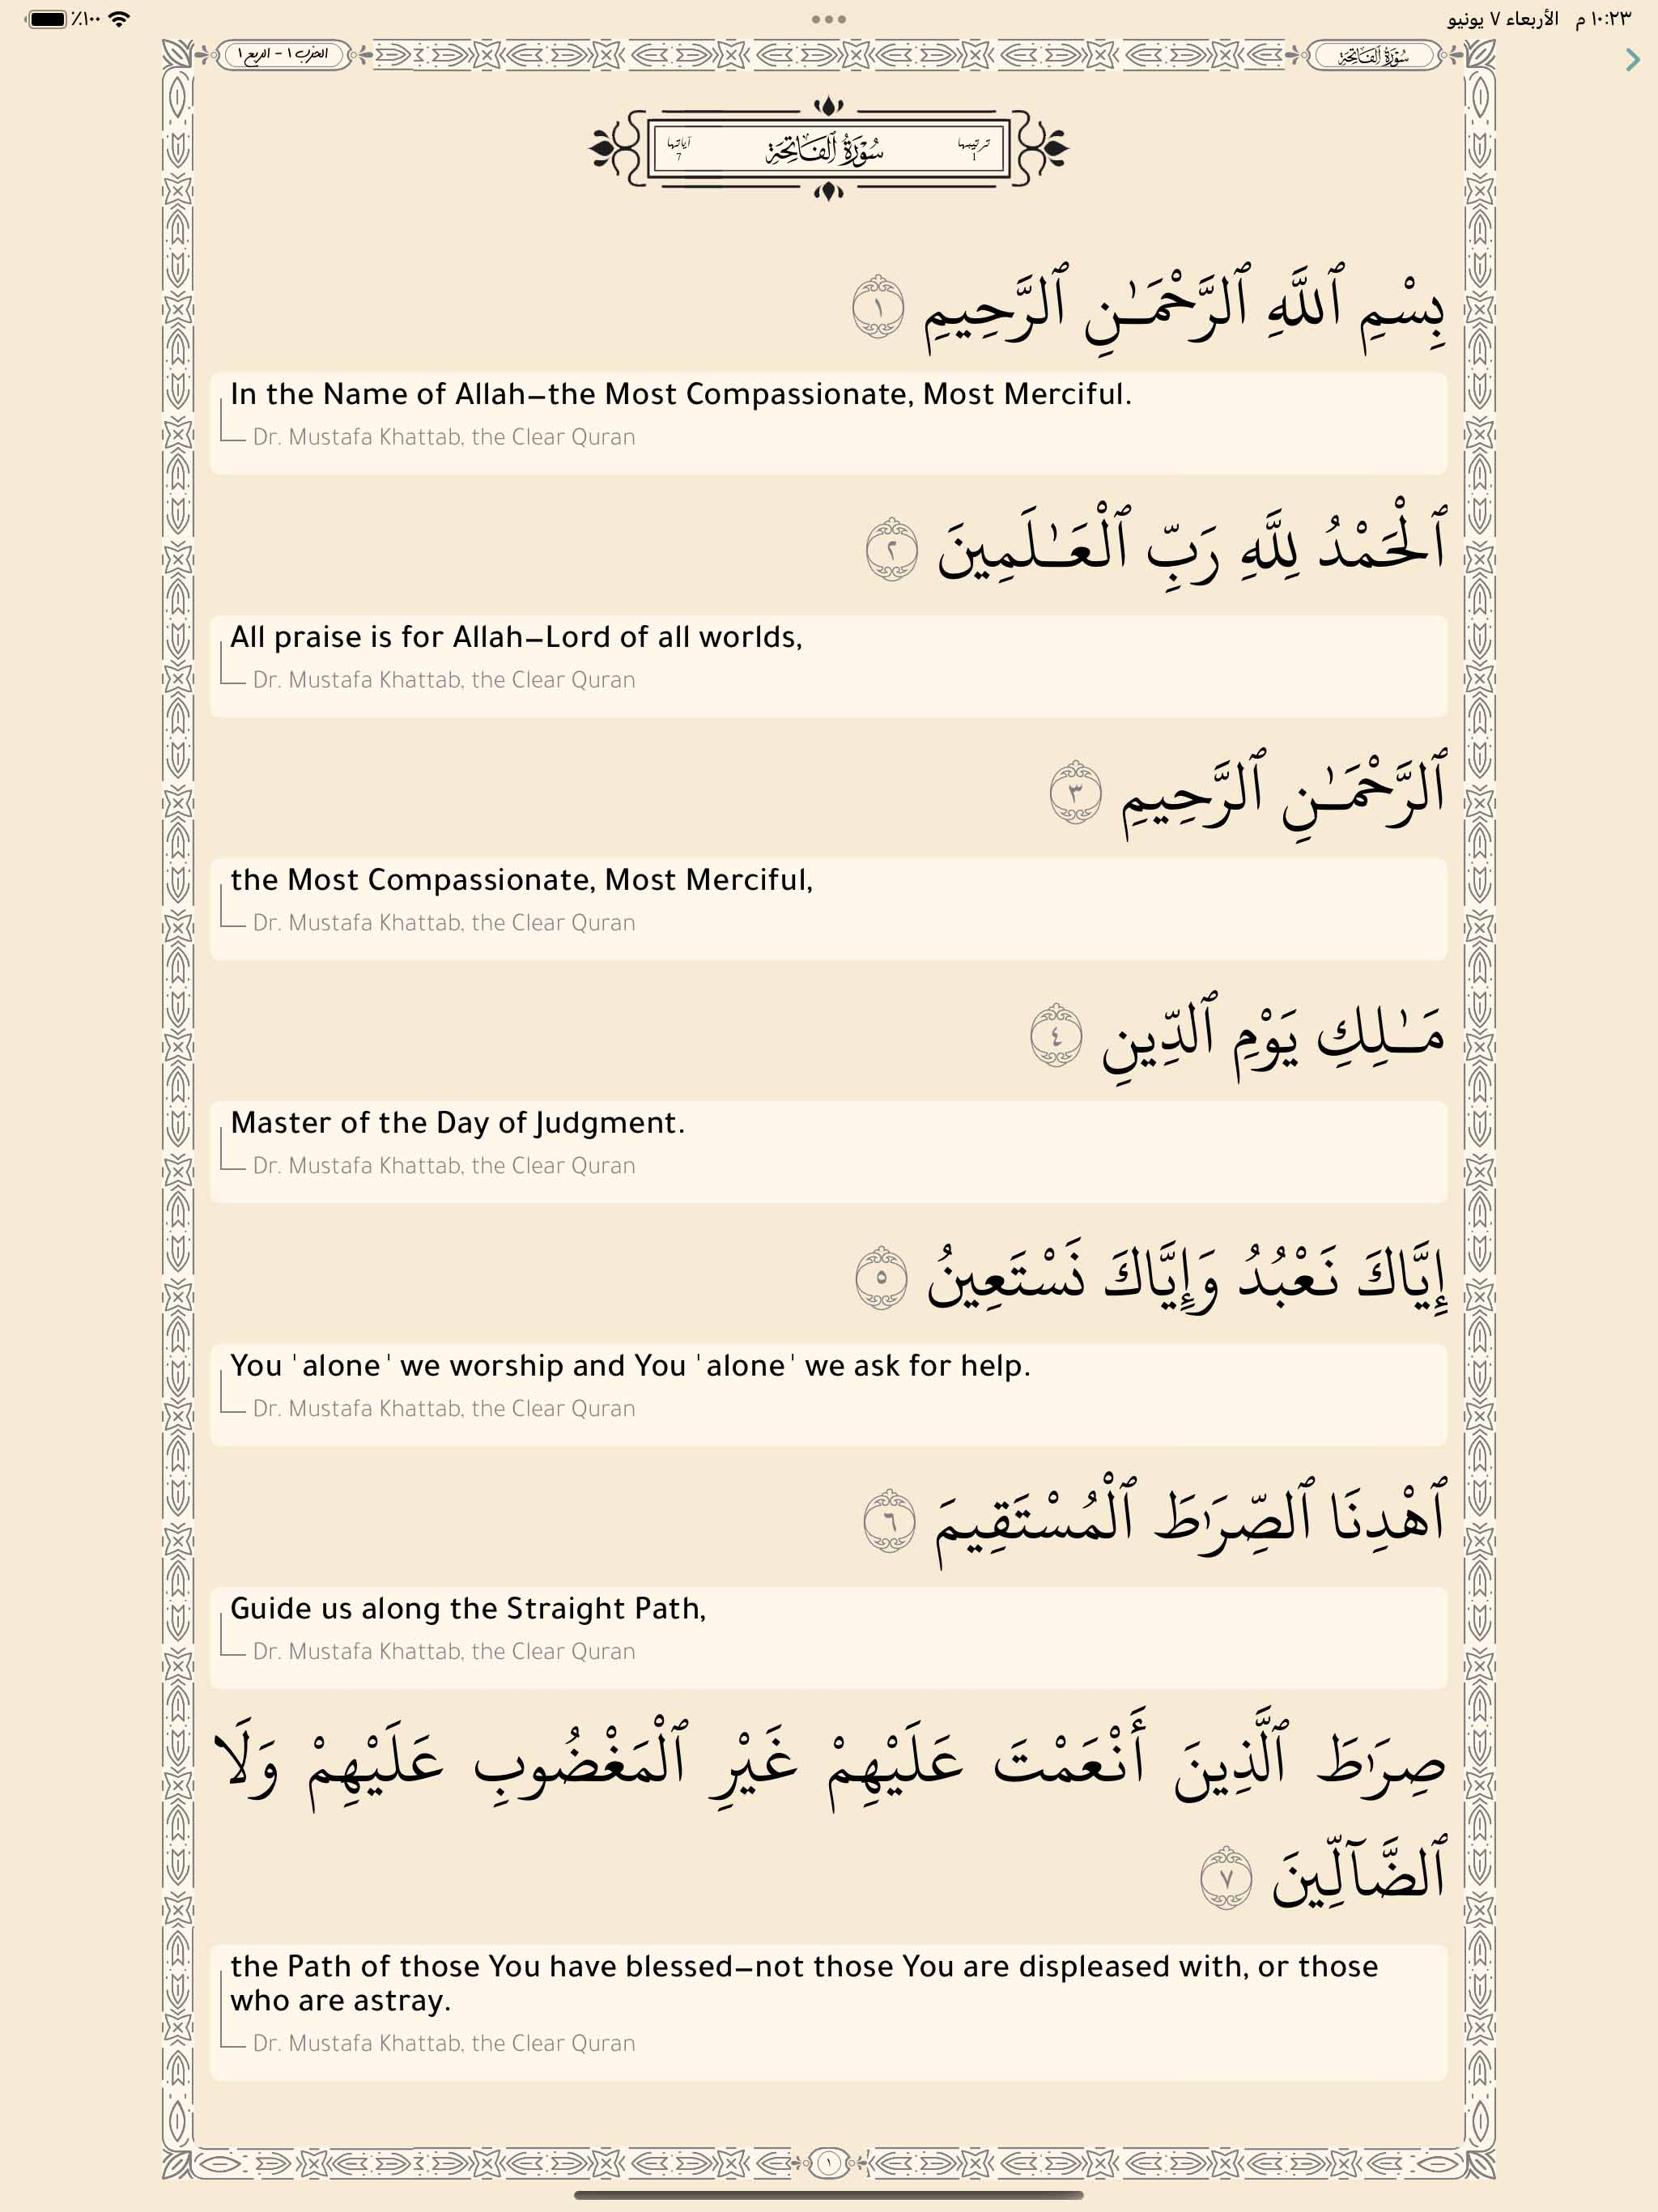 ١٠:٢٣ م الأربعاء ٧ يونيو
٪١٠٠
سُورَةُ ٱلفَاتِحَة
الحزب ١ - الربع ١
ترتيبها
1
سُورَةُ ٱلفَاتِحَة
آياتها
7
بِسْمِ ٱللَّهِ ٱلرَّحْمَـٰنِ ٱلرَّحِيمِ ١
In the Name of Allah—the Most Compassionate, Most Merciful.
Dr. Mustafa Khattab, the Clear Quran
ٱلْحَمْدُ لِلَّهِ رَبِّ ٱلْعَـٰلَمِينَ ٢
All praise is for Allah—Lord of all worlds,
Dr. Mustafa Khattab, the Clear Quran
ٱلرَّحْمَـٰنِ ٱلرَّحِيمِ ٣
the Most Compassionate, Most Merciful,
Dr. Mustafa Khattab, the Clear Quran
مَـٰلِكِ يَوْمِ ٱلدِّينِ ٤
Master of the Day of Judgment.
Dr. Mustafa Khattab, the Clear Quran
إِيَّاكَ نَعْبُدُ وَإِيَّاكَ نَسْتَعِينُ ٥
You ˈaloneˈ we worship and You ˈaloneˈ we ask for help.
Dr. Mustafa Khattab, the Clear Quran
ٱهْدِنَا ٱلصِّرَٰطَ ٱلْمُسْتَقِيمَ ٦
Guide us along the Straight Path,
Dr. Mustafa Khattab, the Clear Quran
صِرَٰطَ ٱلَّذِينَ أَنْعَمْتَ عَلَيْهِمْ غَيْرِ ٱلْمَغْضُوبِ عَلَيْهِمْ وَلَا
ٱلضَّآلِّينَ ٧
the Path of those You have blessed—not those You are displeased with, or those
who are astray.
Dr. Mustafa Khattab, the Clear Quran
١